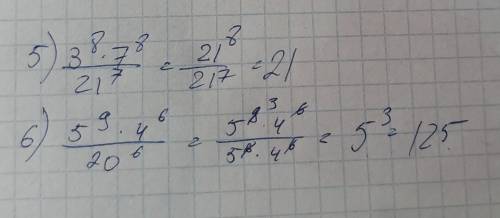 5) 3⁸·7⁸/21⁷ = 21⁸/21⁷ = 21
6) 5⁹·4⁶/20⁶ = 5⁹ ³·4⁶/5⁶·4⁶ = 5³ = 125